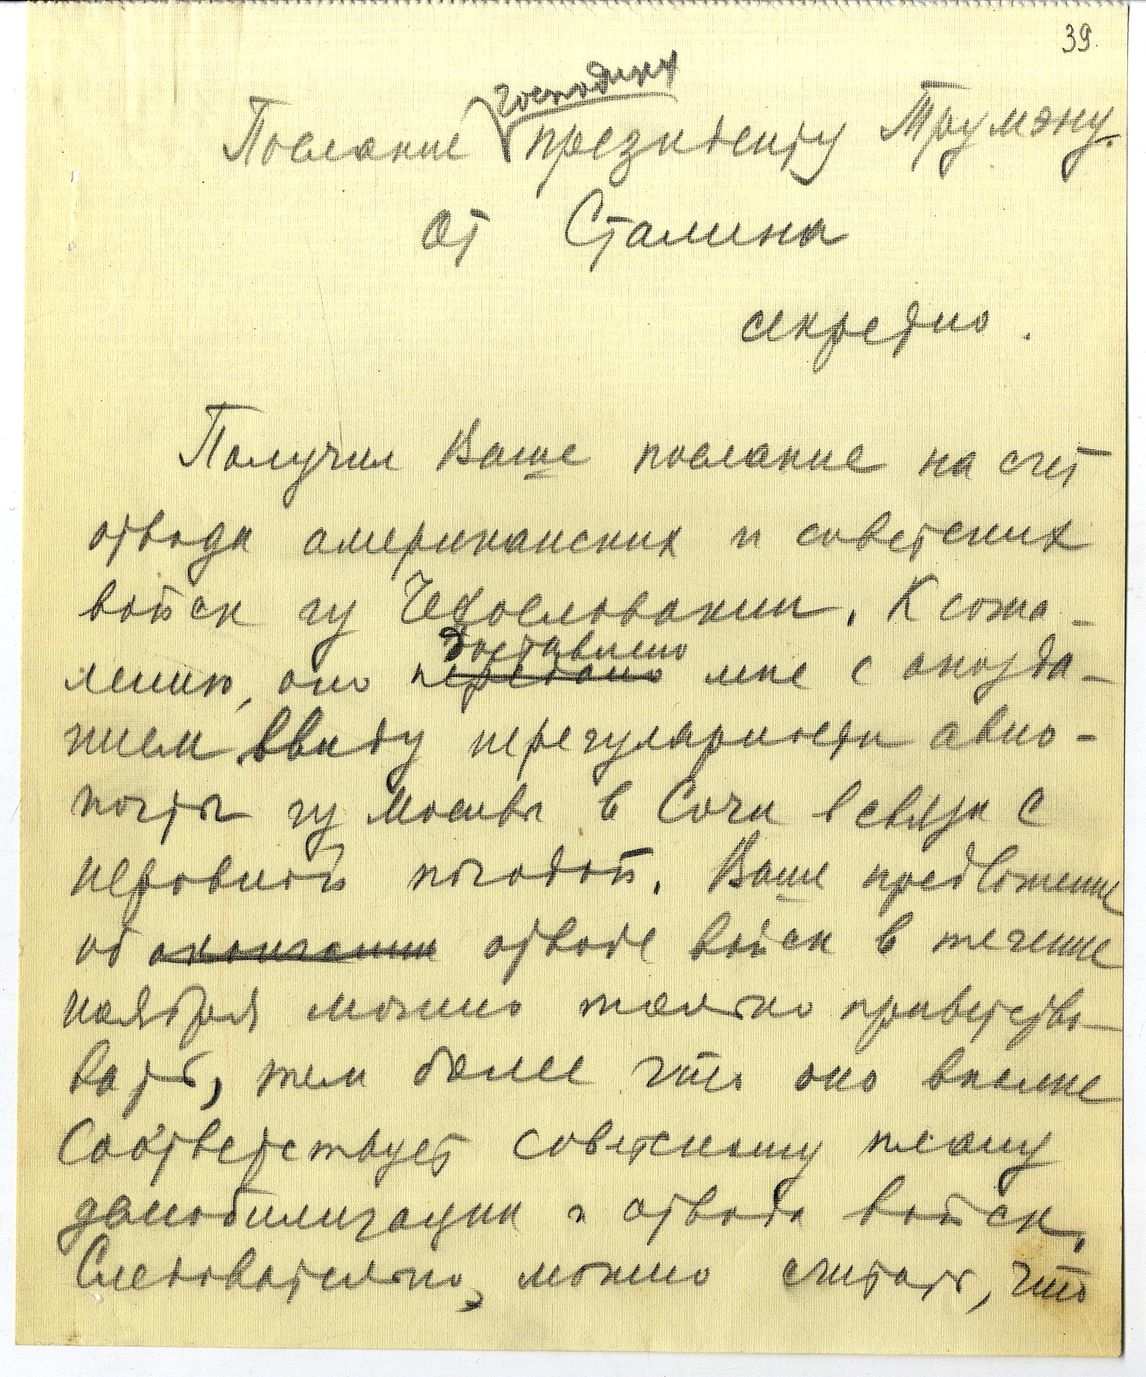 39.
господину
Послание президенту Трумэну.
от Сталина
секретно.
Получил Ваше послание на счет
отвода американских и советских
войск из Чехословакии. К сожа-
доставлено
лению, оно передано мне с опозда-
нием ввиду нерегулярности авио-
почты из Москвы в Сочи в связи с
неровной погодой. Ваше предложение
об окончании отводе войск в течение
ноября можно только приветство-
вать, тем более что оно вполне
соответствует советскому плану
демобилизации и отвода войск.
Следовательно, можно считать, что